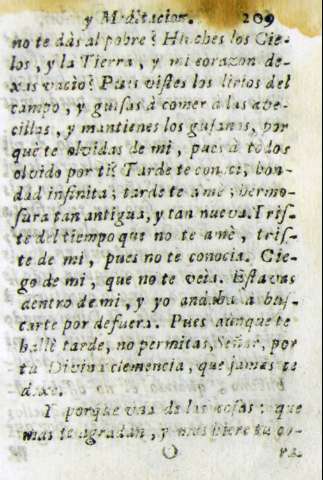 y Meditacion. 209
no te dàs al pobre? Hinches los Cie-
los, y la Tierra, y mi corazon de-
xas vacìo? Pues vistes los lirios del
campo, y guisas à comer à las ave-
cillas, y mantienes los gusanos, por
què te olvidas de mi, pues à todos
olvido por ti? Tarde te conocì, bon-
dad infinita; tarde te amè, hermo-
sura tan antigua, y tan nueva. Tris-
te del tiempo que no te amè, tris-
te de mi, pues no te conocia. Cie-
go de mi, que no te veìa. Estavas
dentro de mi, y yo andaba à bus-
carte por defuera. Pues aunque te
hallè tarde, no permitas, Señor, por
tu Divina clemencia, que jamàs te
dexe.
Y porque una de las cosas que
mas te agradan, y mas hiere tu co-
ra-